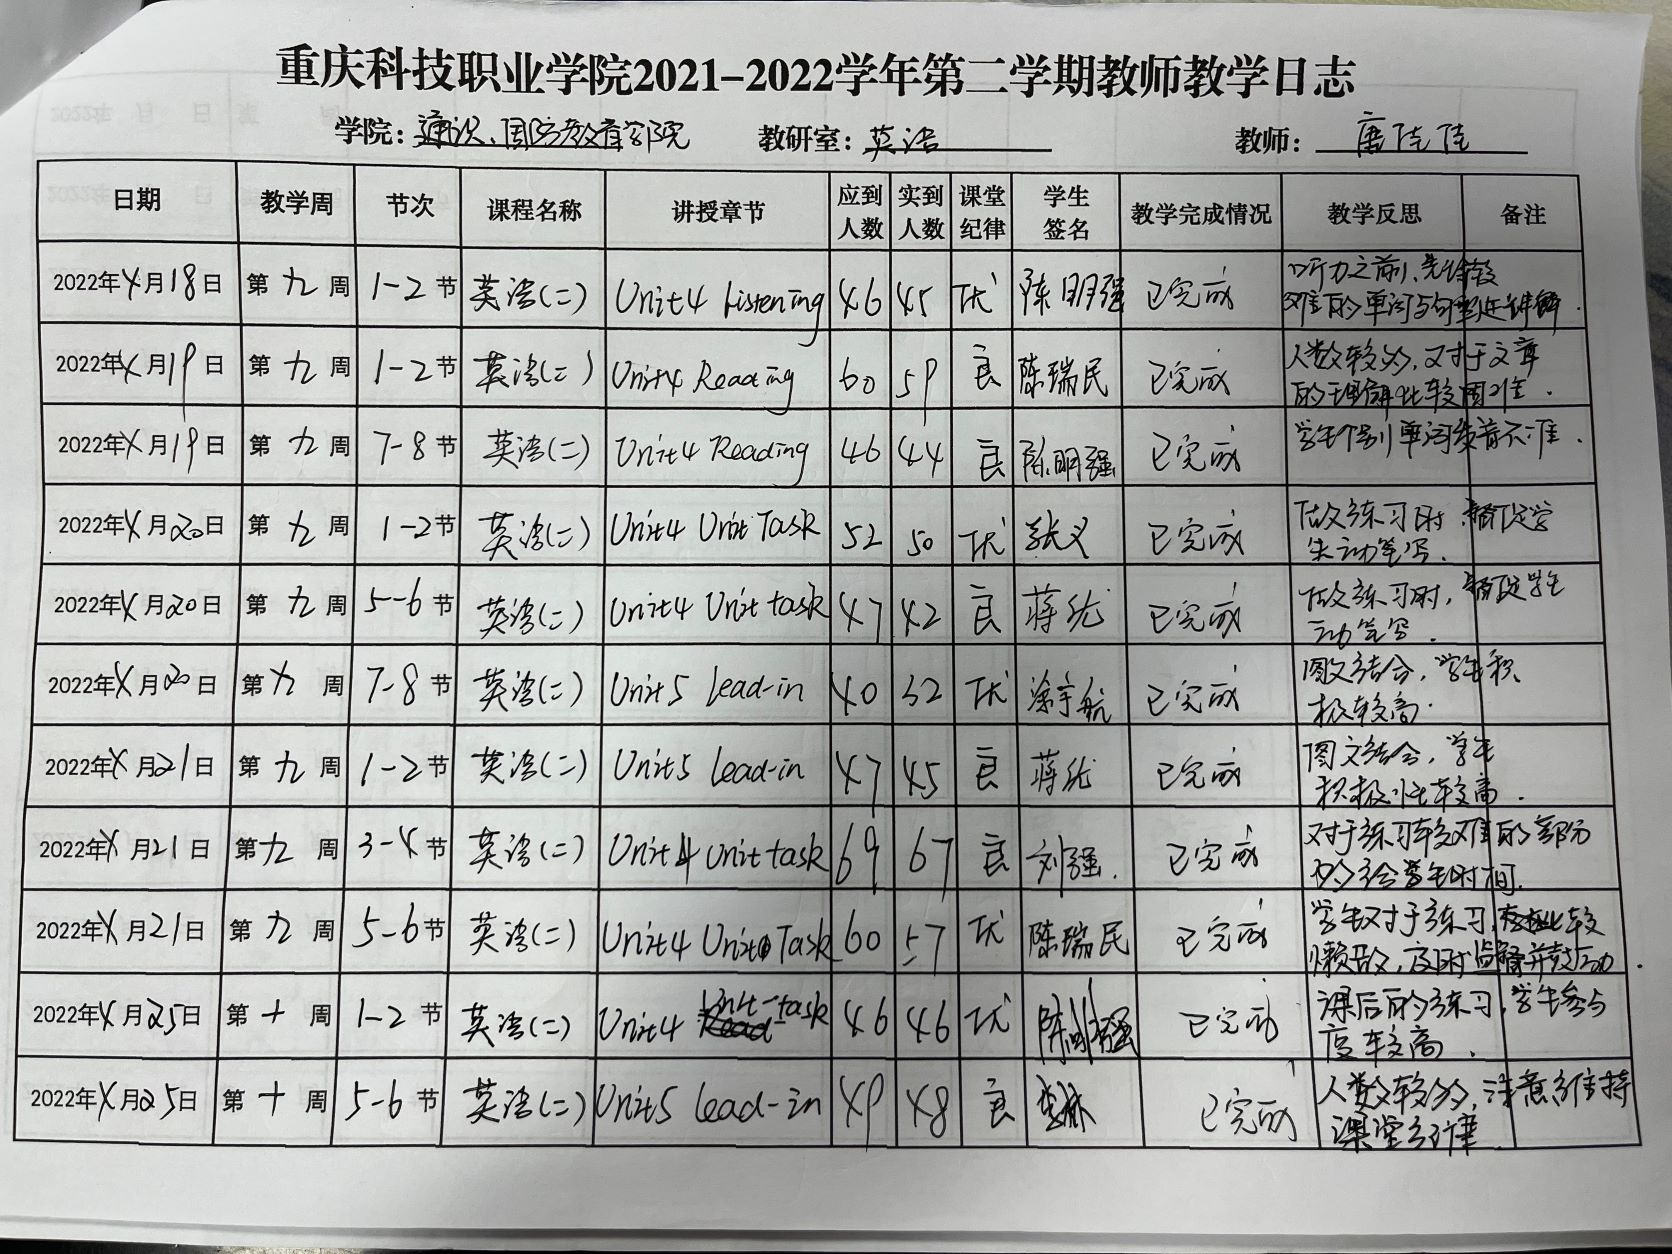 重庆科技职业学院2021-2022学年第二学期教师教学日志
学院: 通识、国防教育学院 教研室: 英语 教师: 唐佳佳
日期 教学周 节次 课程名称 讲授章节 应到人数 实到人数 课堂纪律 学生签名 教学完成情况 教学反思 备注
2022年4月18日 第九周 1-2节 英语(二) Unit4 Listening 46 45 优 陈明强 已完成 听力之前,先给较难的单词与句型进行讲解.
2022年4月19日 第九周 1-2节 英语(二) Unit4 Reading 60 59 良 陈瑞民 已完成 人数较多,对于文章的理解比较困难.
2022年4月19日 第九周 7-8节 英语(二) Unit4 Reading 46 44 良 陈明强 已完成 学生个别单词发音不准.
2022年4月20日 第九周 1-2节 英语(二) Unit4 Unit Task 52 50 优 张义 已完成 做练习时,督促学生动笔写.
2022年4月20日 第九周 5-6节 英语(二) Unit4 Unit task 47 42 良 蒋优 已完成 做练习时,督促学生动笔写.
2022年4月20日 第九周 7-8节 英语(二) Unit5 Lead-in 40 32 优 涂宇航 已完成 图文结合,学生积极较高.
2022年4月21日 第九周 1-2节 英语(二) Unit5 Lead-in 47 45 良 蒋优 已完成 图文结合,学生积极性较高.
2022年4月21日 第九周 3-4节 英语(二) Unit4 Unit task 69 67 良 刘强. 已完成 对于练习较难的部分多给学生时间.
2022年4月21日 第九周 5-6节 英语(二) Unit4 Unit Task 60 57 优 陈瑞民 已完成 学生对于练习,较懒散,及时监督并鼓励.
2022年4月25日 第十周 1-2节 英语(二) Unit4 Unit-task 46 46 优 陈明强 已完成 课后的练习,学生参与度较高.
2022年4月25日 第十周 5-6节 英语(二) Unit5 Lead-in 49 48 良 已完成 人数较多,注意维持课堂纪律.